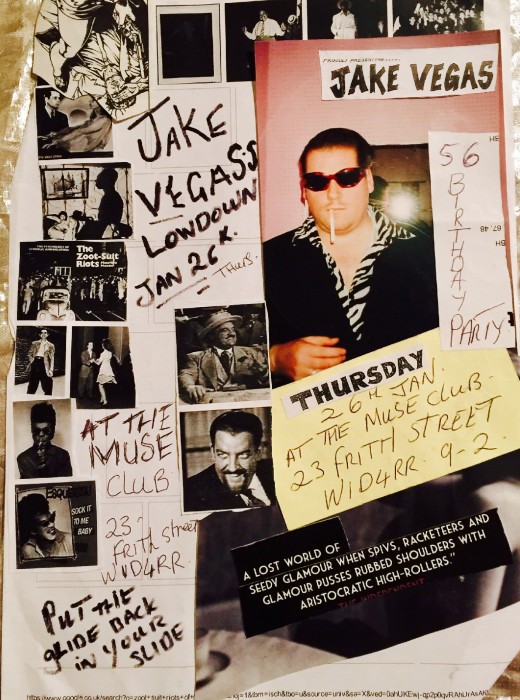 JAKE
VEGAS'S
LOWDOWN
JAN 26th.
THURS.
The
Zoot-Suit
Riots
AT THE
MUSE
CLUB
23
frith street
W1D4RR.
ESQUERITA
SOCK IT
TO ME
BABY
PUT THE
GLIDE BACK
IN YOUR
SLIDE
PROUDLY PRESENTING......
JAKE VEGAS
56
BIRTHDAY
PARTY
THURSDAY
26TH JAN.
AT THE MUSE CLUB.
23 FRITH STREET
W1D4RR. 9-2.
A LOST WORLD OF
SEEDY GLAMOUR WHEN SPIVS, RACKETEERS AND
GLAMOUR PUSSES RUBBED SHOULDERS WITH
ARISTOCRATIC HIGH-ROLLERS."
THE INDEPENDENT